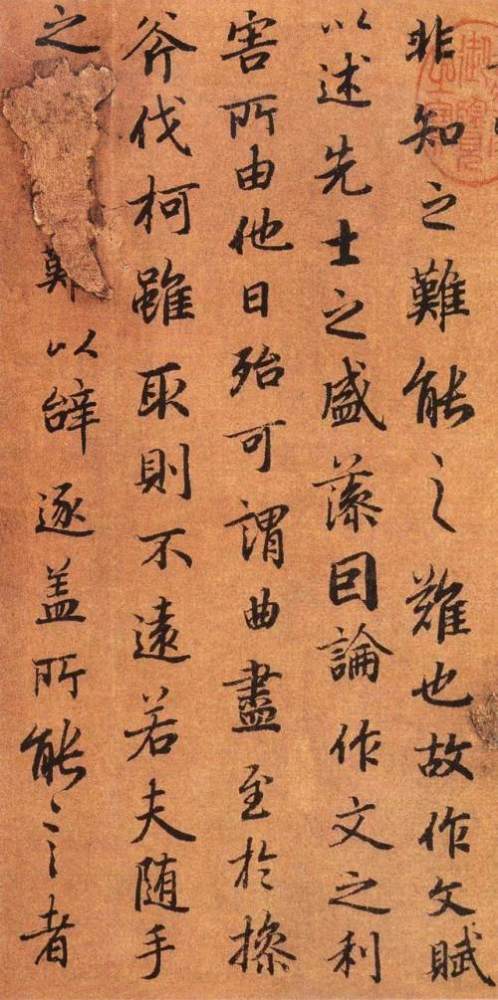 非知之難能之難也故作文賦
以述先士之盛藻因論作文之利
害所由他日殆可謂曲盡至於操
斧伐柯雖取則不遠若夫随手
之難以辭逐盖所能之者